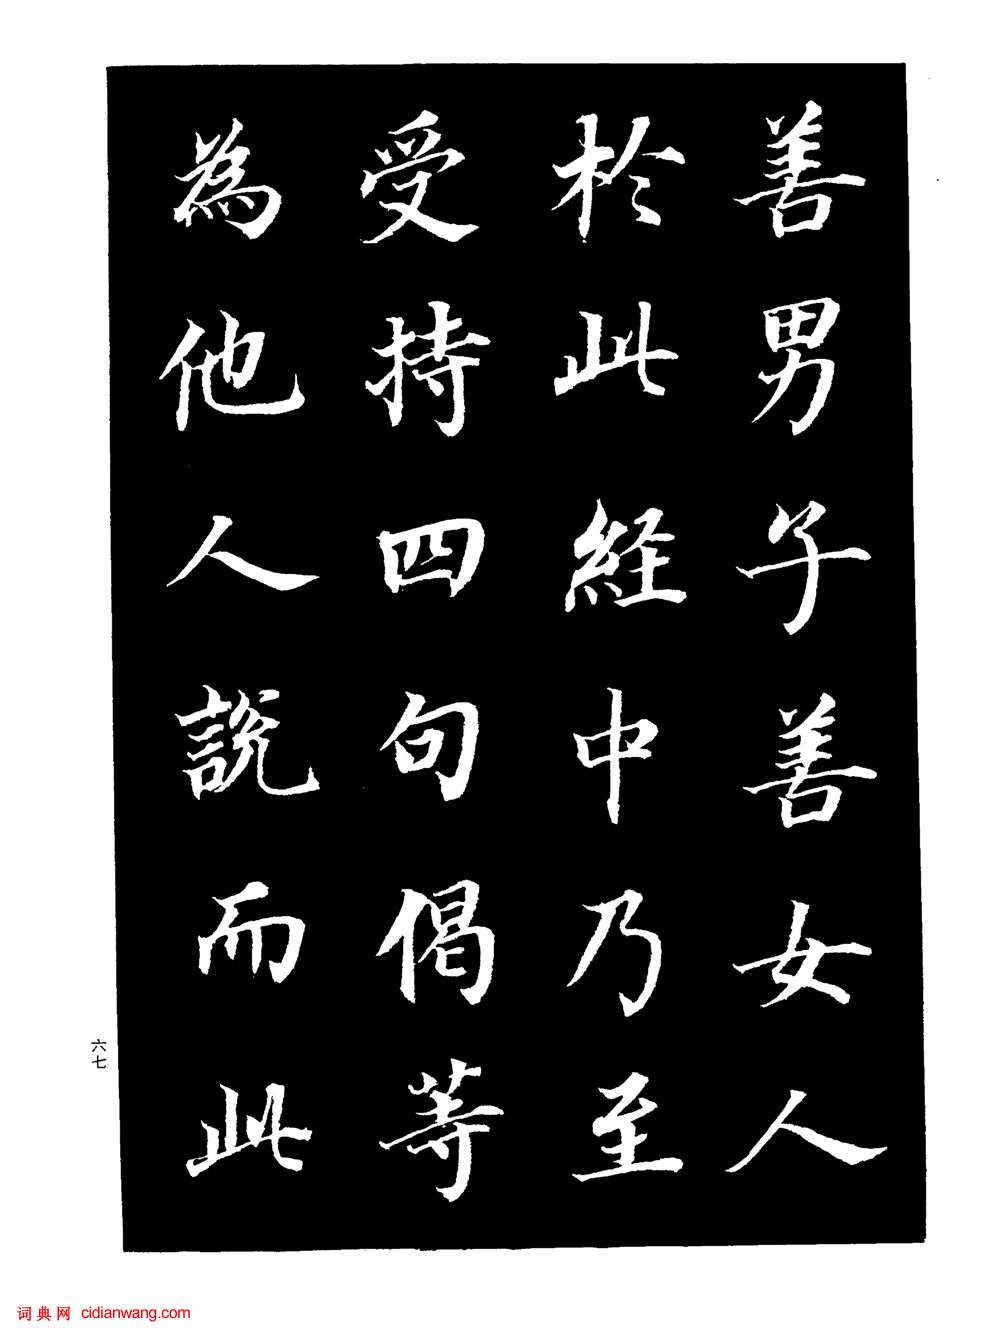 善男子善女人
於此經中乃至
受持四句偈等
為他人說而此
六七
词典网 cidianwang.com